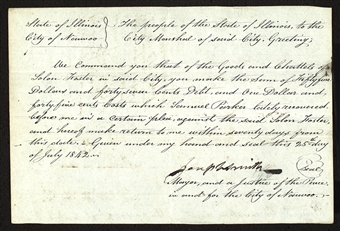 State of Illinois } The people of the State of Illinois, to the
City of Nauvoo } City Marshal of said City, Greeting;
We Command you that of the Goods and Chattels of
Solon Foster in said City, you make the sum of Fifty
Dollars and forty seven Cents Debt, and One Dollar and
forty five cents Costs which Samuel Parker lately recovered
before me in a certain plea against the said Solon Foster,
and hereof make return to me within seventy days from
this date. Given under my hand and seal this 25th day
of July 1842.
Joseph Smith Seal
Mayor, and a Justice of the Peace,
in and for the City of Nauvoo.